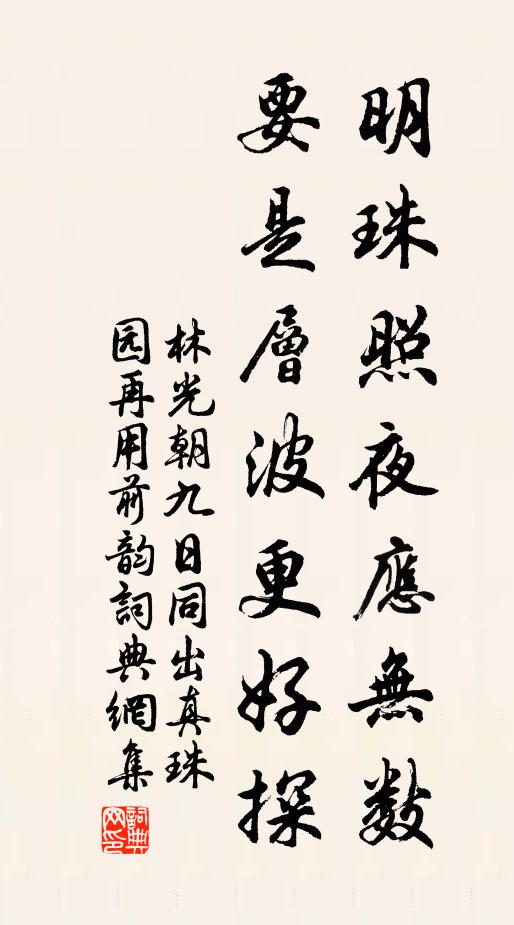 明珠照夜應無數
要是層波更好探
林光朝九日同出真珠
园再用前韵詞典網集
詞典网印